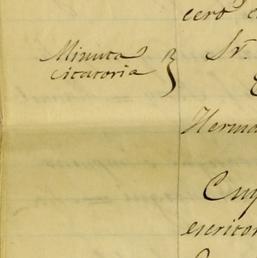 cero
Minuta
citatoria
Sr.
Herma
escritor